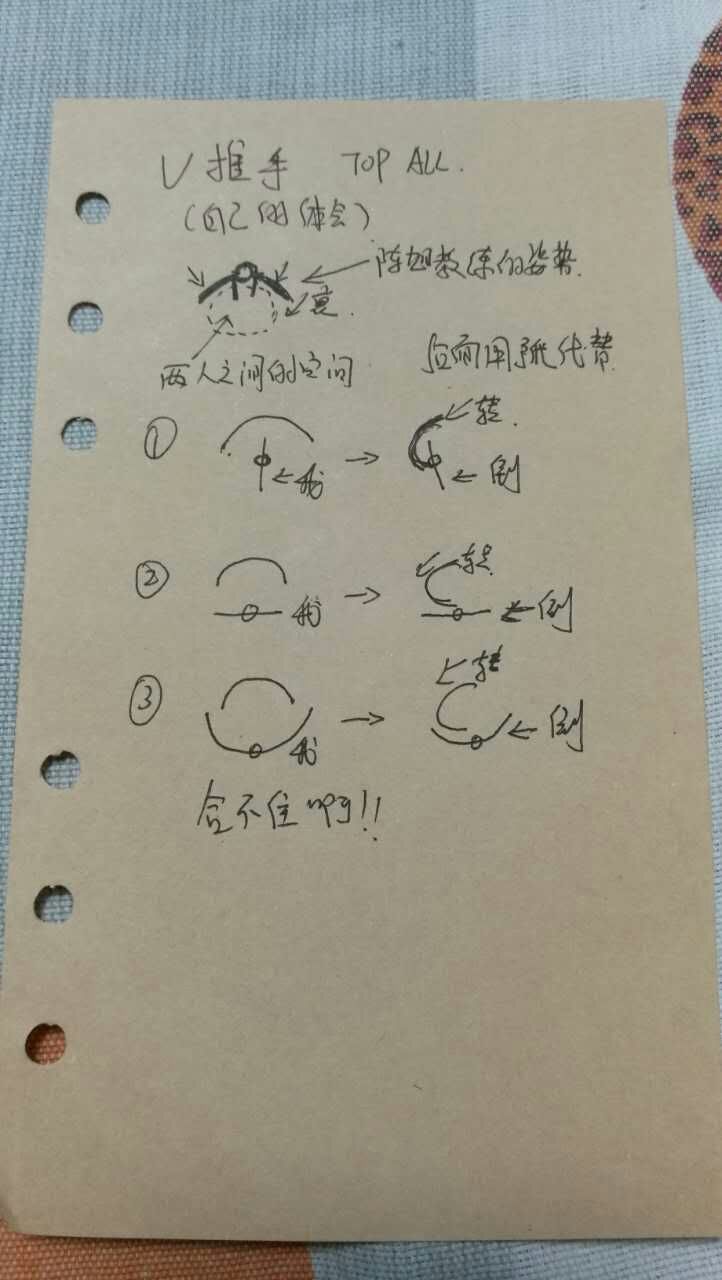 V 推手 TOP ALL.
(自己的体会)
陈旭教练的姿势.
裹.
两人之间的空间
后面用⌒代替
① 我 → 转. 倒
② 我 → 转 倒
③ 我 → 转 倒
合不住啊!!